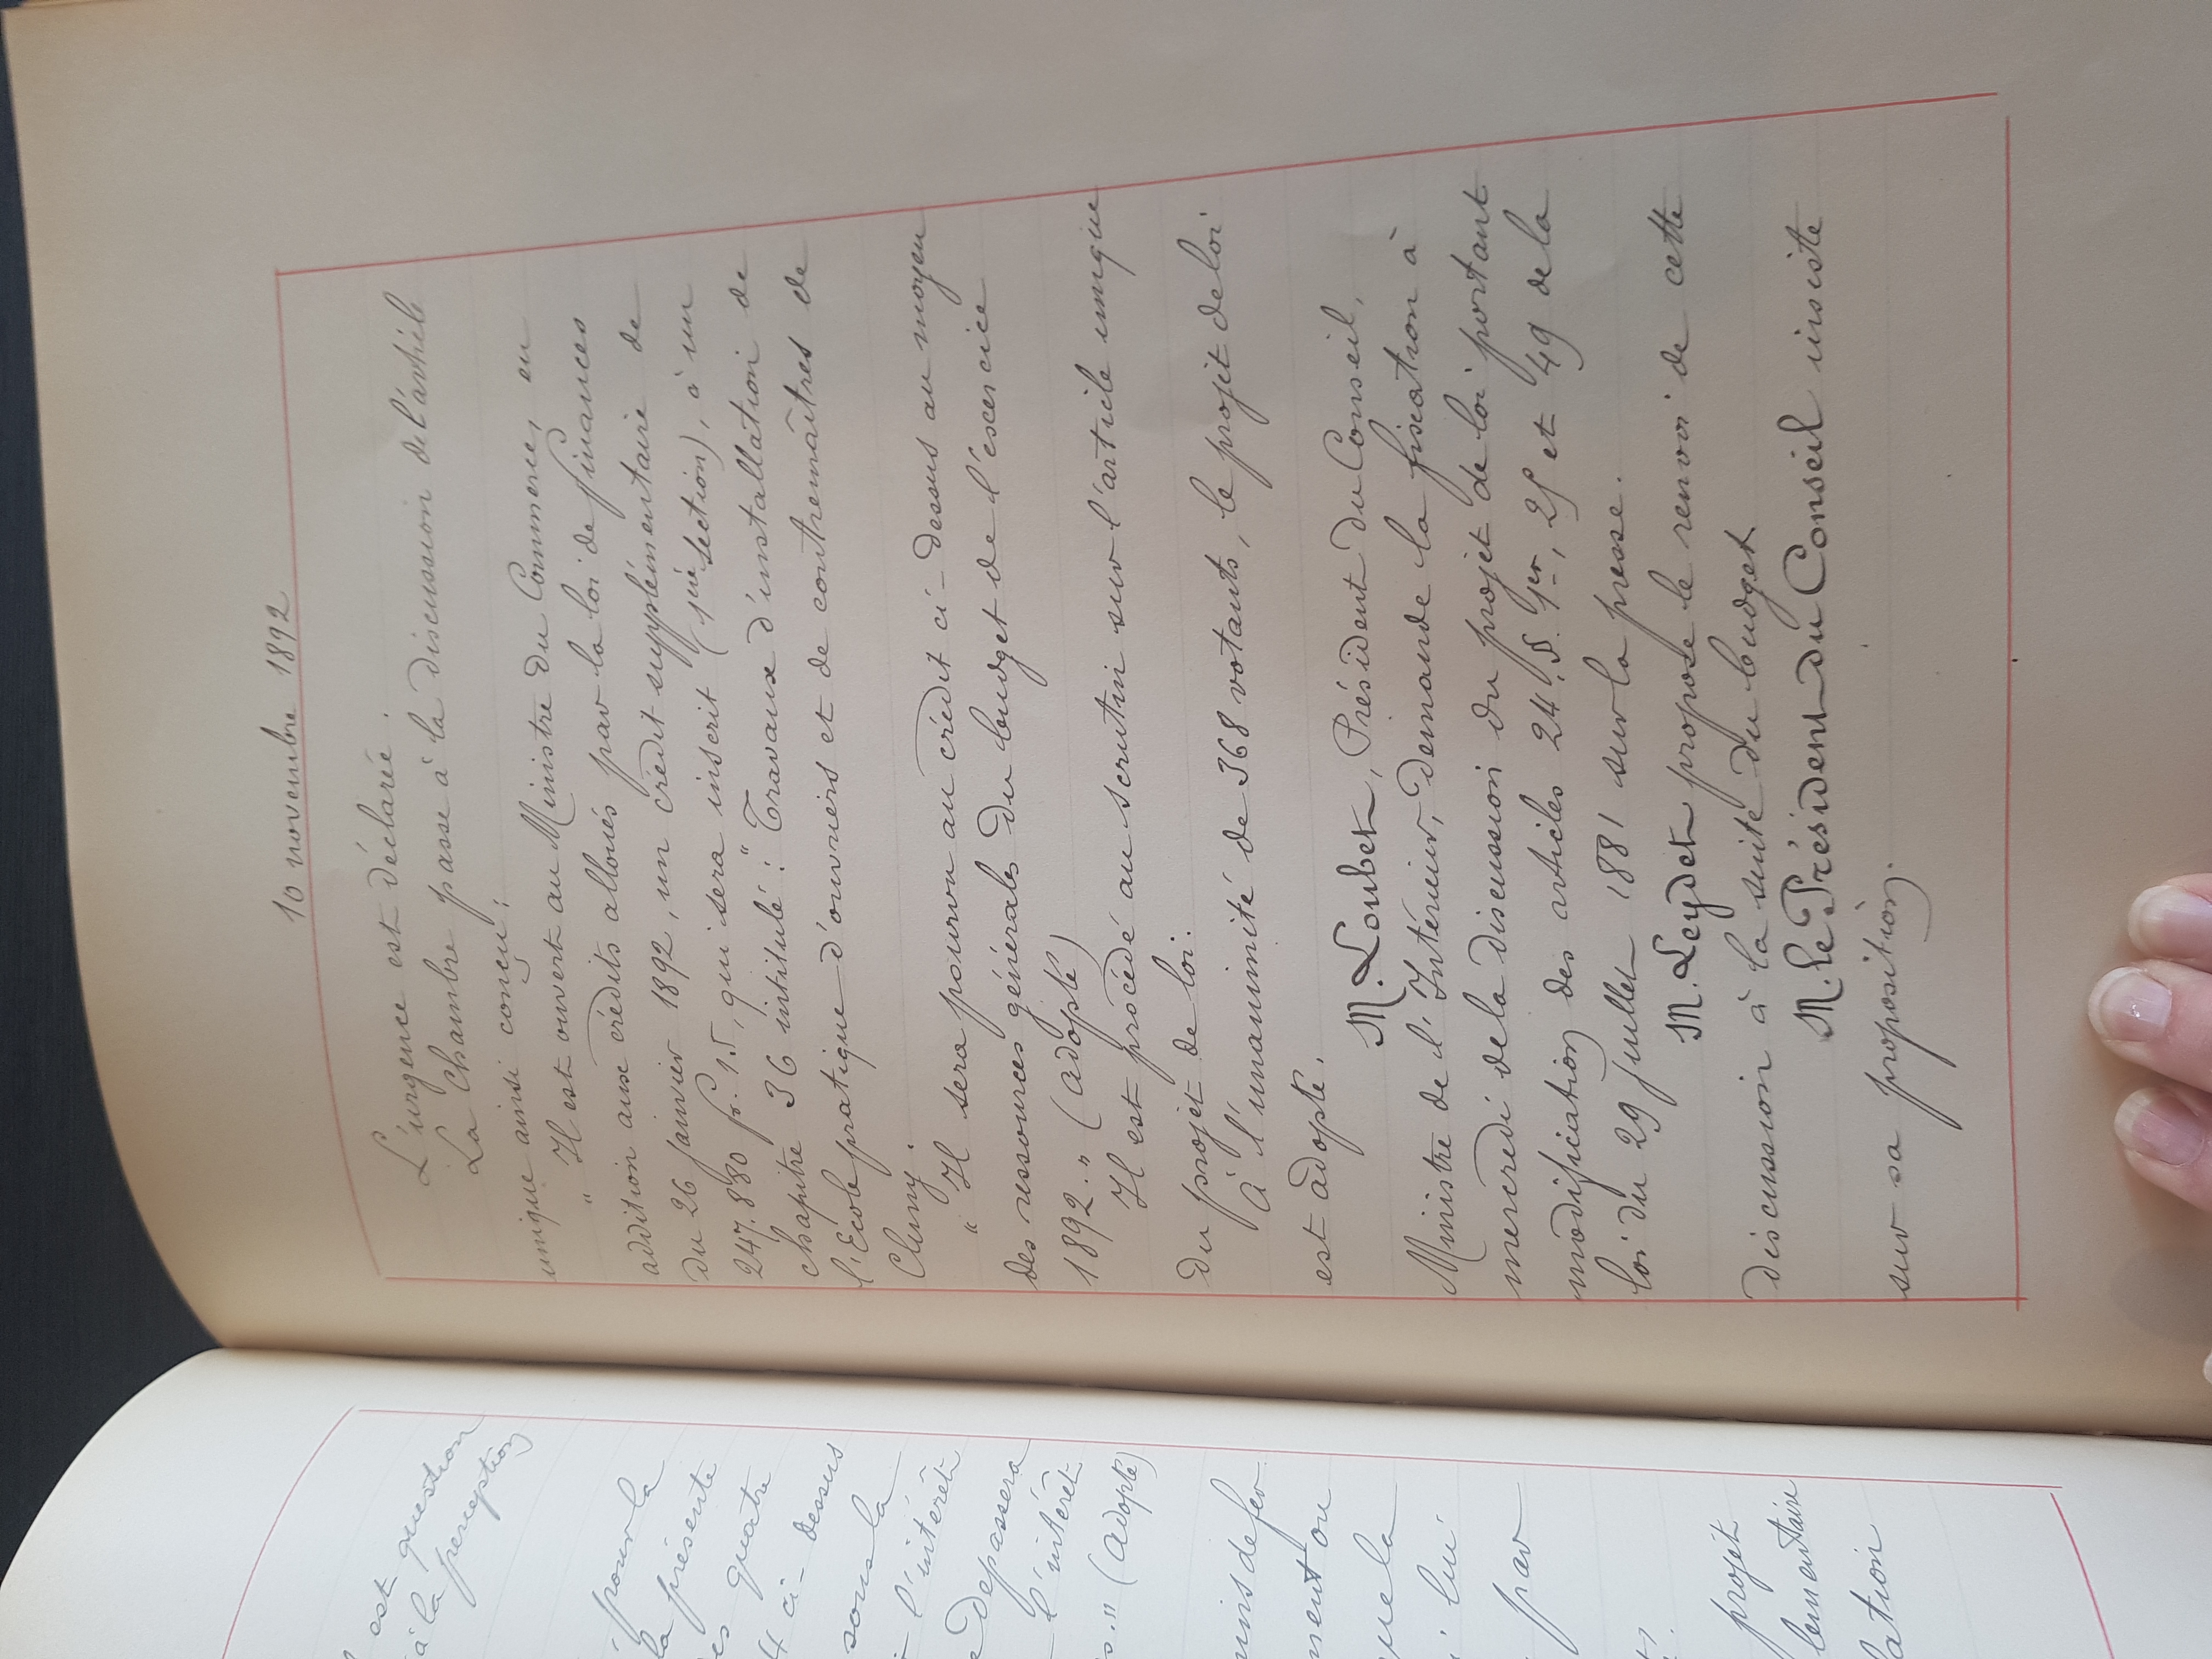 est question
à la perception
, pour la
la présente
es quatre
4 ci-dessus
sous la
l'intérêt
depassera
l'intérêt
." (adopté)
ins de fer
ment ou
que la
lui
par
projet
lementaire
lation
10 novembre 1892
L'urgence est déclarée.
La Chambre passe à la discussion de l'article
unique ainsi conçu :
" Il est ouvert au Ministre du Commerce, en
addition aux crédits alloués par la loi de finances
du 26 janvier 1892, un crédit supplémentaire de
247.880 fr. 15, qui sera inscrit (1ère section), à un
chapitre 36 intitulé : "Travaux d'installation de
l'Ecole pratique d'ouvriers et de contremaîtres de
Cluny.
" Il sera pourvu au crédit ci-dessus au moyen
des ressources générales du budget de l'exercice
1892." (adopté)
Il est procédé au scrutin sur l'article unique
du projet de loi.
À l'unanimité de 368 votants, le projet de loi
est adopté.
M. Loubet, Président du Conseil,
Ministre de l'Intérieur, demande la fixation à
mercredi de la discussion du projet de loi portant
modification des articles 24, §. 1er, 25 et 49 de la
loi du 29 juillet 1881 sur la presse.
M. Leydet propose le renvoi de cette
discussion à la suite du budget
M. le Président du Conseil insiste
sur sa proposition.